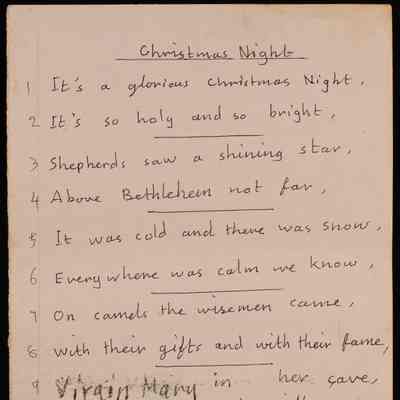 Christmas Night
1 It's a glorious Christmas Night,
2 It's so holy and so bright,
3 Shepherds saw a shining star,
4 Above Bethlehem not far,
5 It was cold and there was snow,
6 Everywhere was calm we know,
7 On camels the wisemen came,
8 with their gifts and with their fame,
9 Virgin Mary in her cave,